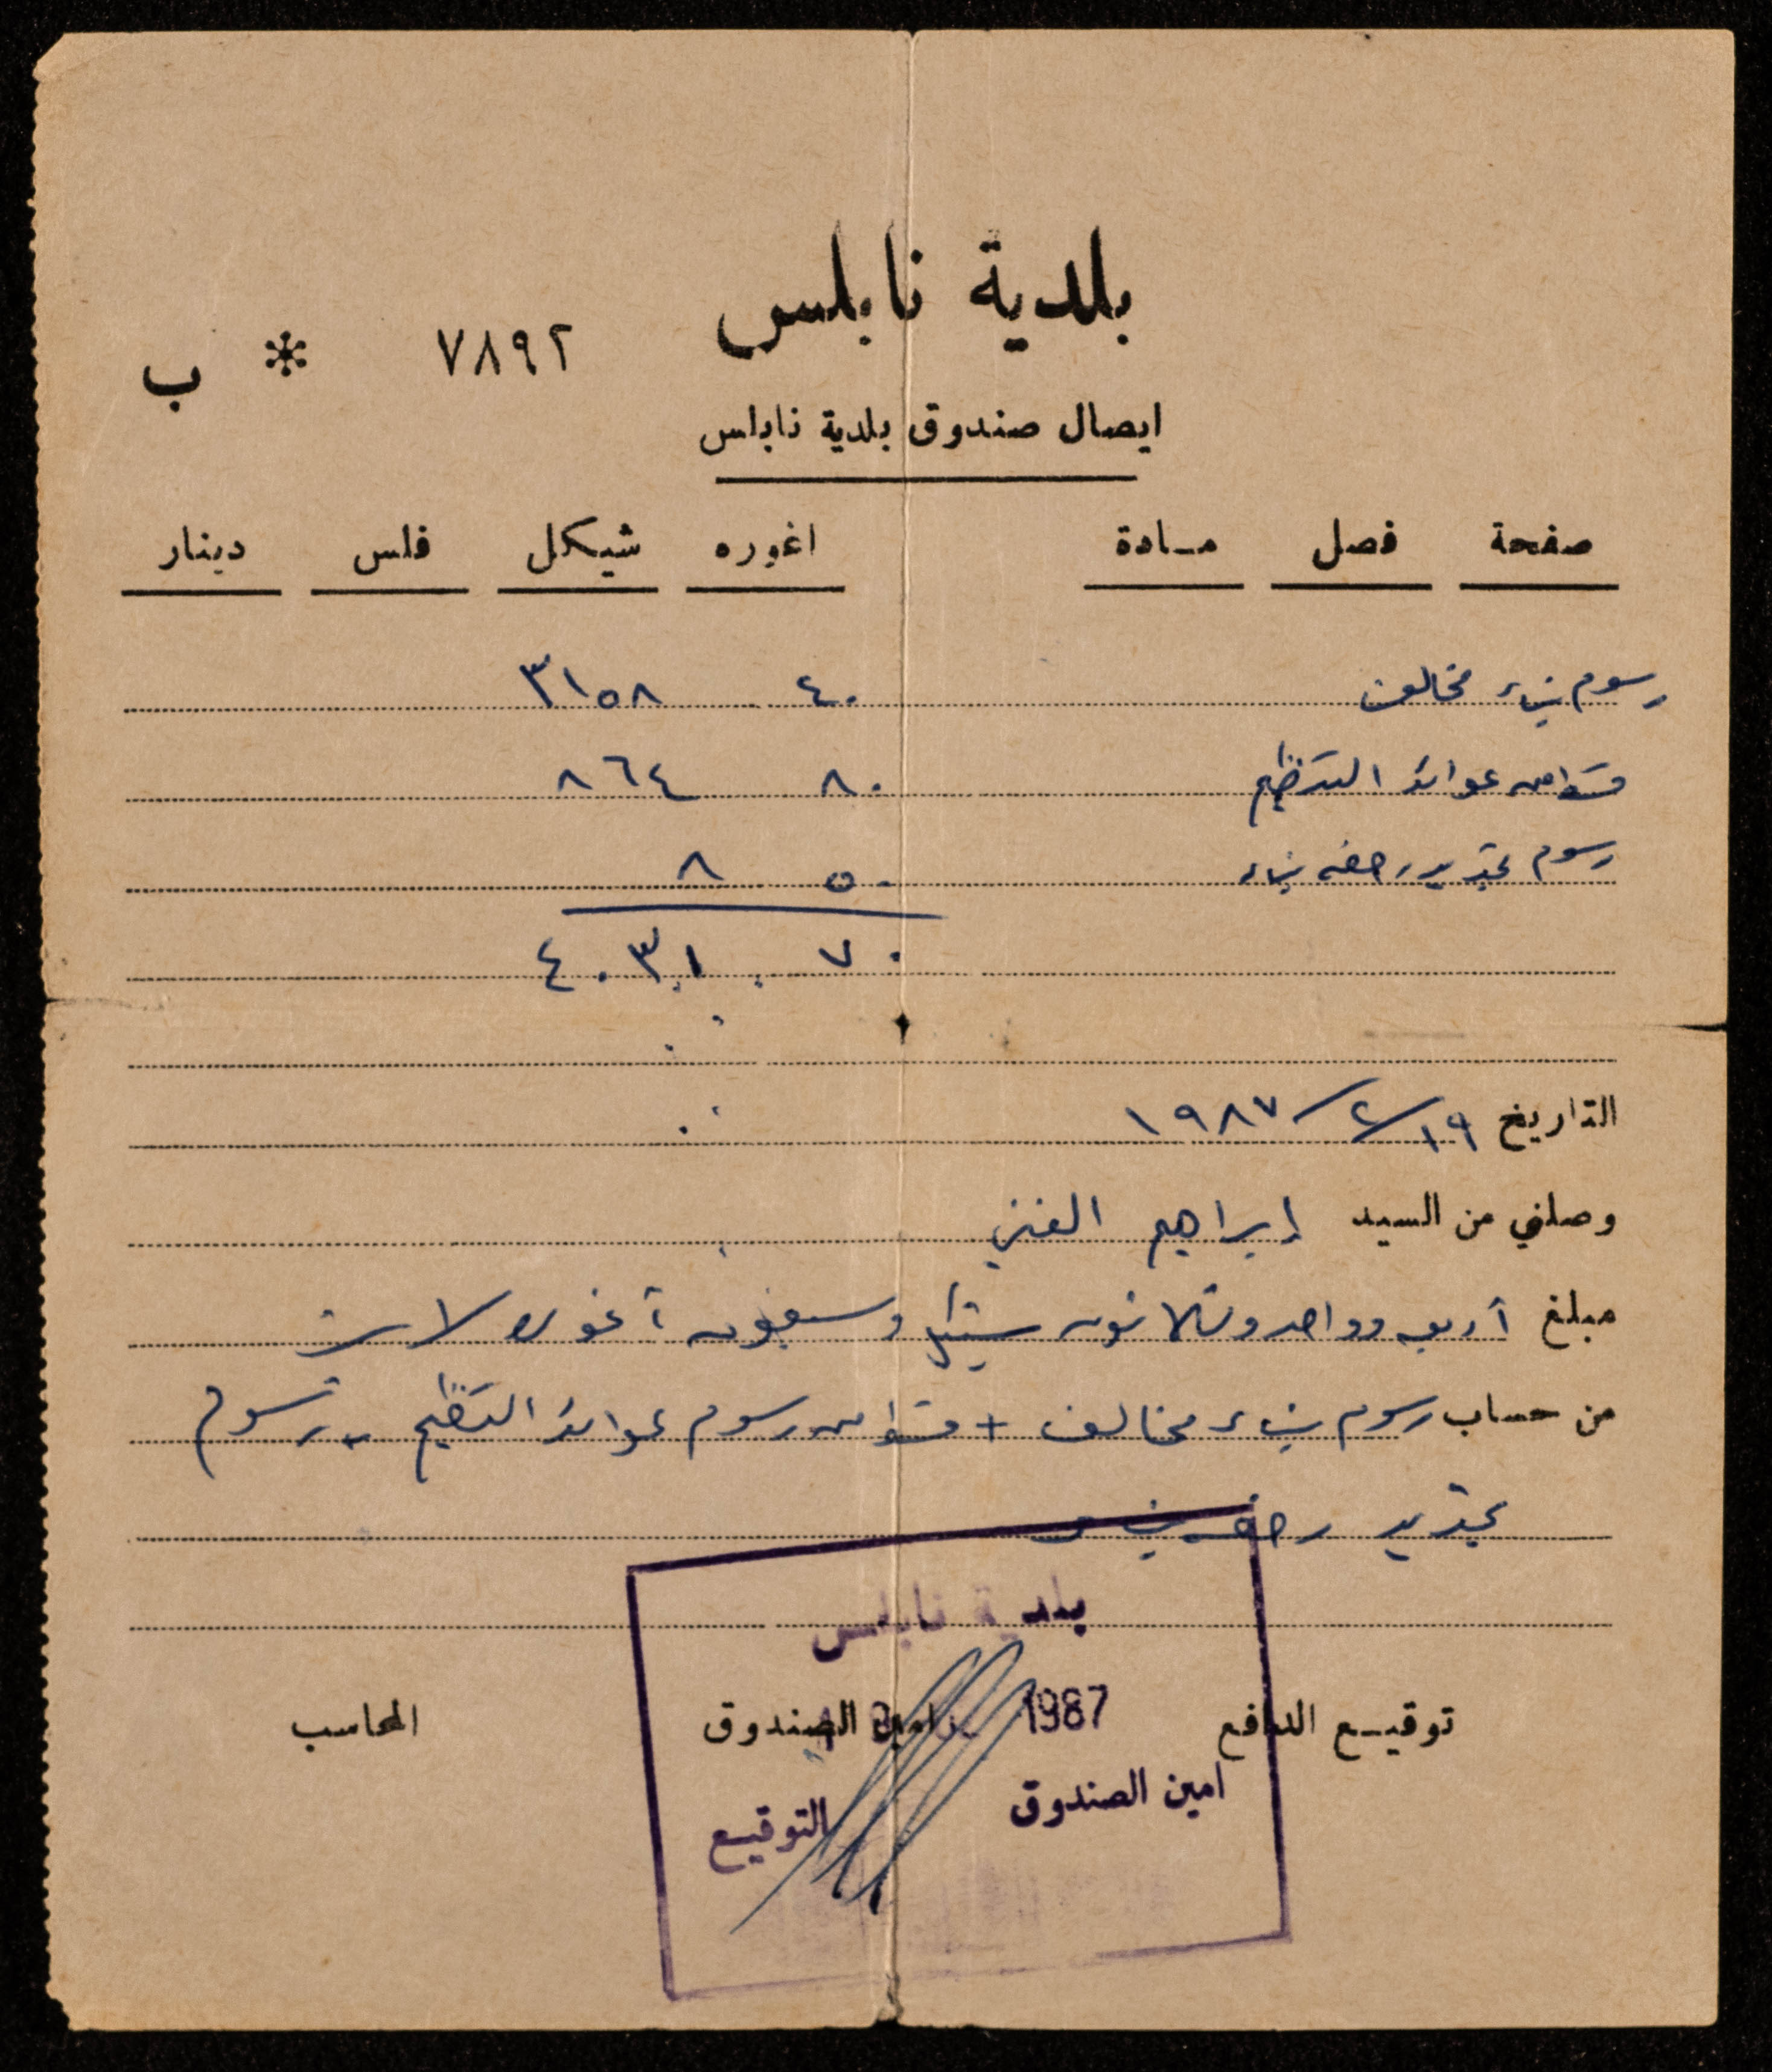 بلدية نابلس
٧٨٩٢ * ب
ايصال صندوق بلدية نابلس
صفحة فصل مـادة اغوره شيكل فلس دينار
رسوم بناء مخالف ٤٠ ٣١٥٨
عوائد التنظيم ٨٠ ٨٦٤
رسوم تجديد رخصة بناء ٥٠ ٨
٧٠ ٤٠٣١
التاريخ ١٩/٢/١٩٨٧
وصلني من السيد إبراهيم الغنبي
مبلغ أربعة وواحد وثلاثون شيكل وسبعون أغورة لا
من حساب رسوم بناء مخالف + رسوم عوائد التنظيم رسوم
تجديد رخصة بناء
بلدية نابلس
توقيـع الدافع امين الصندوق المحاسب
1987
امين الصندوق التوقيع